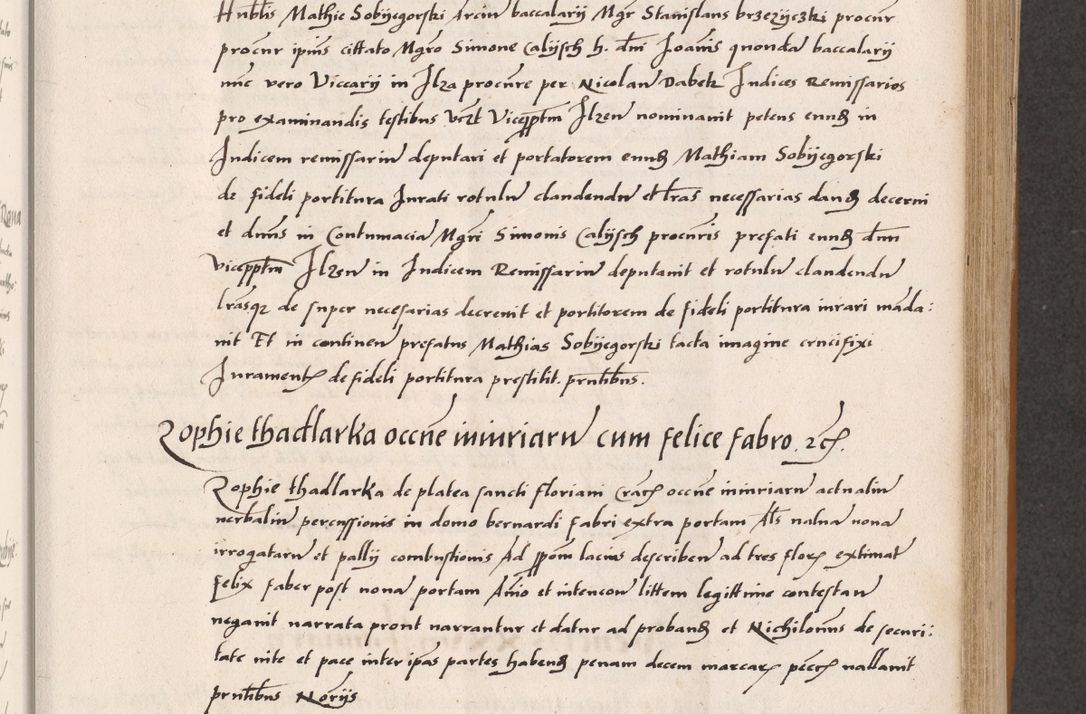 Hnblis Mathie Sobijegorski Arciu baccalarij Mgr Stanislaus brzezijczki procur
procur ipius cittato Mgro Simone Calijsch h. dni Joanis quonda baccalarij
nuc vero Viccarij in Ilza procure per Nicolau Dabek Judices Remissarios
pro examinandis testibus Vicepptm Ilzen nominauit petens eund in
Judicem remissariu deputari et portatorem eund Mathiam Sobijegorski
de fideli portitura Jurati rotulu claudendu et lras necessarias dand decerni
et dnus in Contumacia Mgri Simonis Calijsch procuris prefati eund dnm
vicepptm Ilzen in Judicem Remissariu deputauit et rotulu claudendu
lrasq de super necesarias decreuit et portitorem de fideli portitura iurari mada:
uit Et in continen prefatus Mathias Sobijegorski tacta imagine crucifixi
Jurament de fideli portitura prestitit. prntibus.
Zophie thadlarka occne iniuriaru cum felice fabro. rc.
Zophie thadlarka de platea sancti floriani occne iniuriaru actualiu
uerbaliu percussionis in domo bernardi Fabri extra portam Als nalna nona
irrogataru et pallij combustionis Ad ppom lacius describen ad tres flor extimat
Felix Faber post nona portam Anio et intencou littem legittime contestan
negauit narrata prout narrantur et datur ad proband et Nichilonus de securi:
tate uite et pace inter ipas partes habend penam decem marcar pecc uallauit
prntibus Norijs